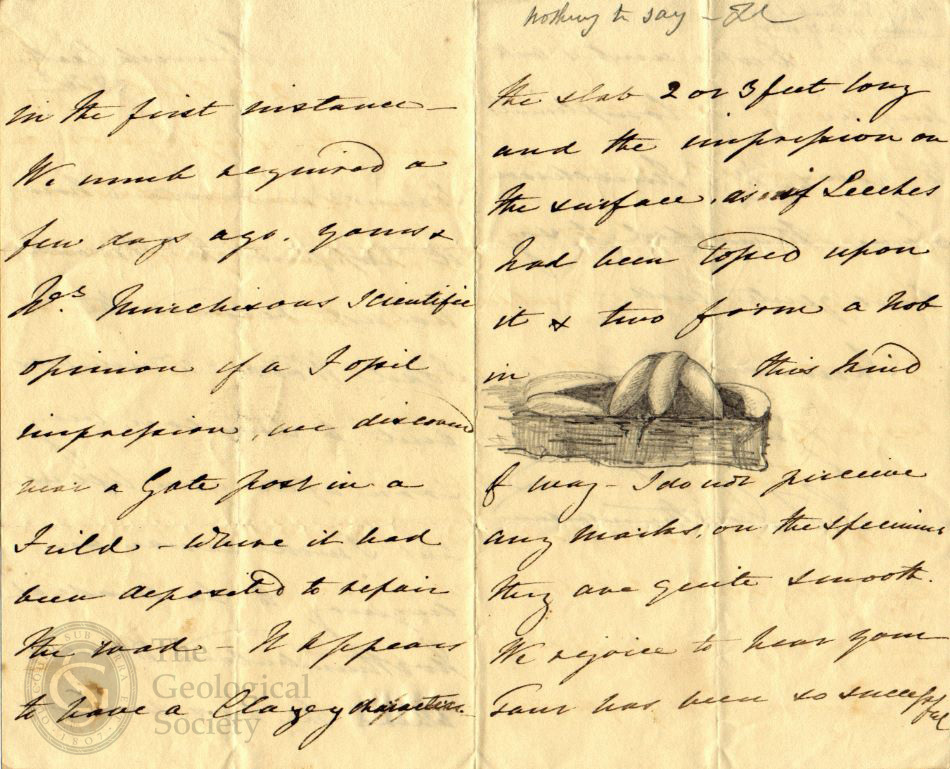 in the first instance –
We much required a
few days ago. yours &
Mrs. Murchisons Scientific
opinion of a Fossil
impression, we discovered
near a Gate post in a
Field – Where it had
been deposited to repair
the road – It appears
to have a Clayey
nothing to say –
the slab 2 or 3 feet long
and the impression on
the surface, as if Leeches
had been tossed upon
it & two form a Nob
in this kind
of way – I do not perceive
any marks, on the specimens
they are quite smooth.
We rejoice to hear your
Tour has been so successful
The
Geological
Society